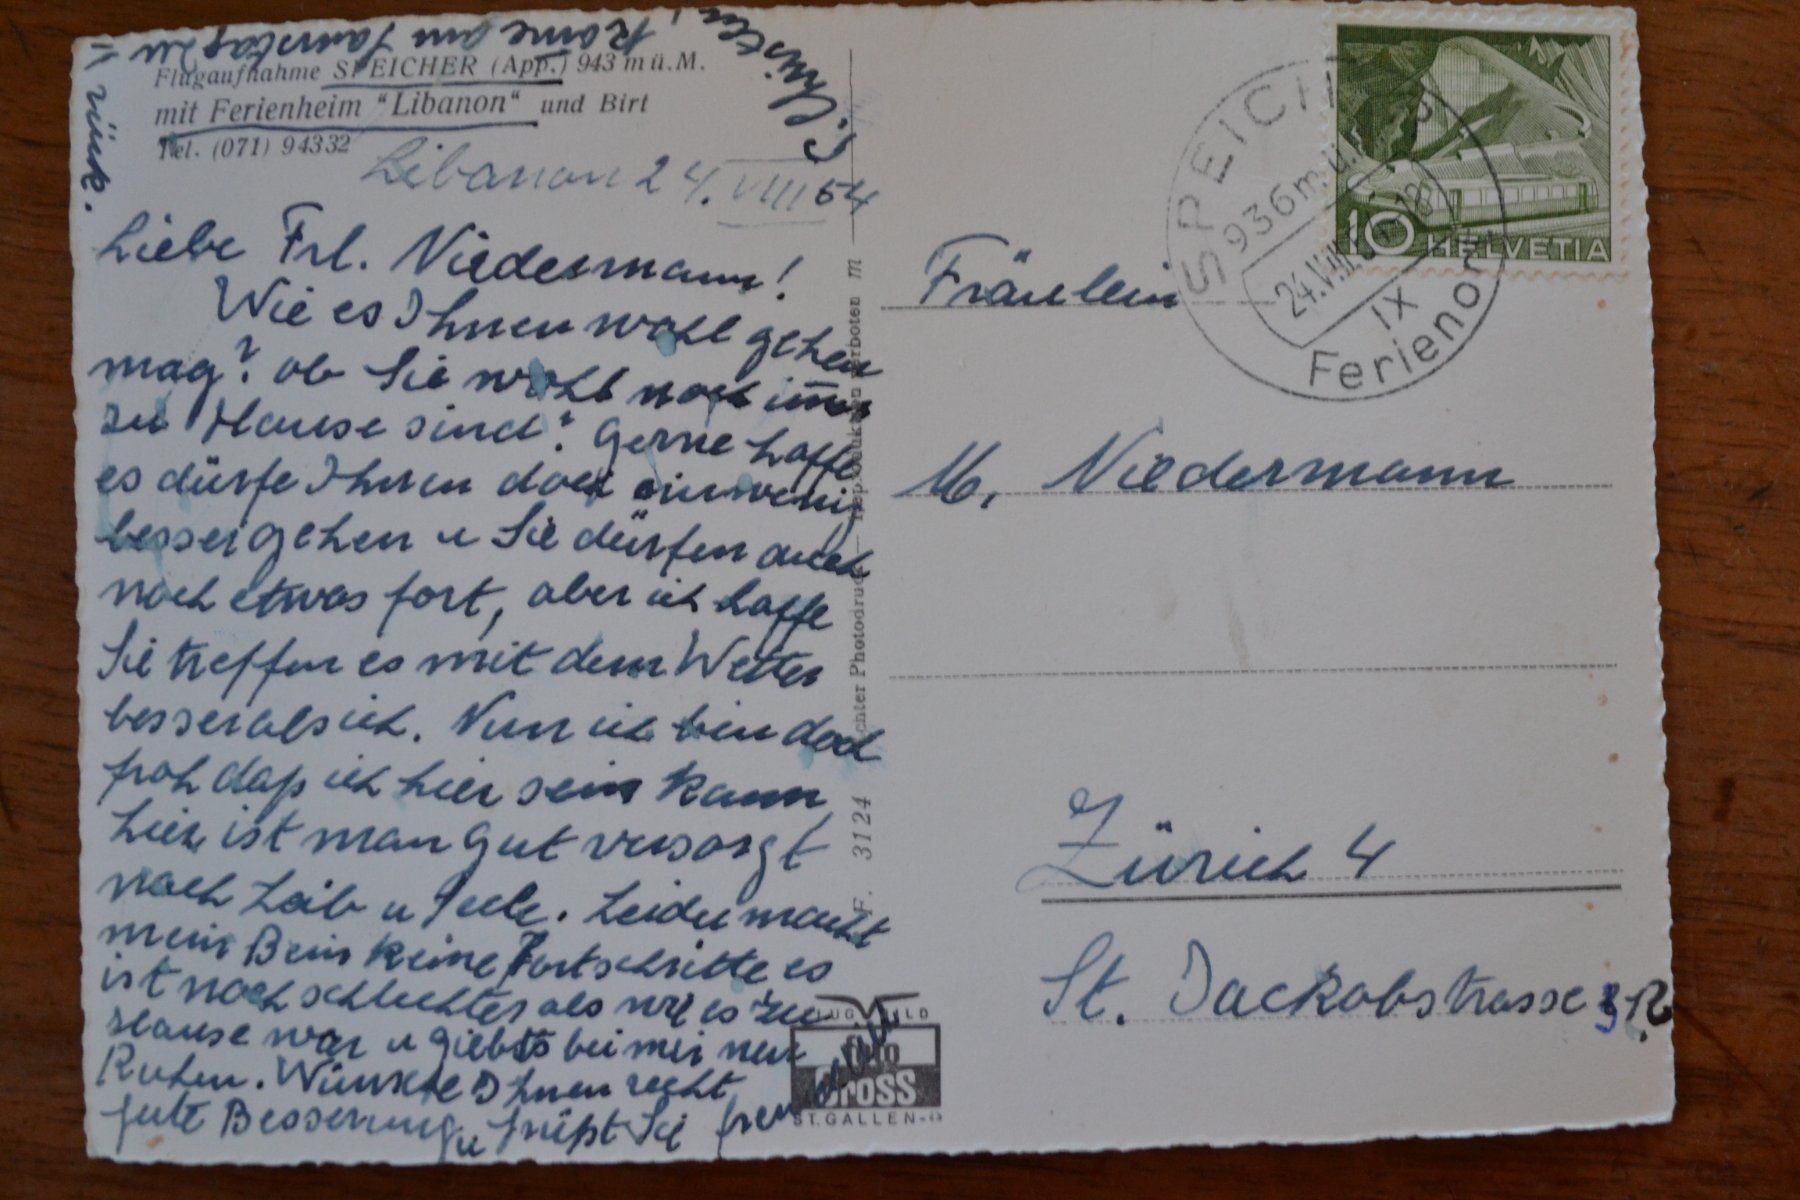 Flugaufnahme SPEICHER (App.) 943 m ü. M.
mit Ferienheim "Libanon" und Birt
Tel. (071) 94332
Libanon 24. VIII 54
Liebe Frl. Niedermann!
Wie es Ihnen wohl gehen
mag? ob Sie wohl noch immer
zu Hause sind? Gerne hoffe
es dürfe Ihnen doch ein wenig
besser gehen u Sie dürfen auch
noch etwas fort, aber ich hoffe
Sie treffen es mit dem Wetter
besser als ich. Nun ich bin doch
froh daß ich hier sein kann
hier ist man gut versorgt
nach Leib u Seele. Leider macht
mein Bein keine Fortschritte es
ist noch schlechter als wie es zu
Hause war u giebts bei mir nur
Ruhen. Wünsche Ihnen recht
gute Besserung u grüßt Sie freundlich
Komme am Samstag zu
rück.
F. 3124 Echter Photodruck – Reproduktion verboten
FLUGBILD
foto
Gross
ST. GALLEN
SPEICHER
936 m. ü.
24.VIII 18
IX
Ferienort
10 HELVETIA
Fräulein
M. Niedermann
Zürich 4
St. Jackobstrasse